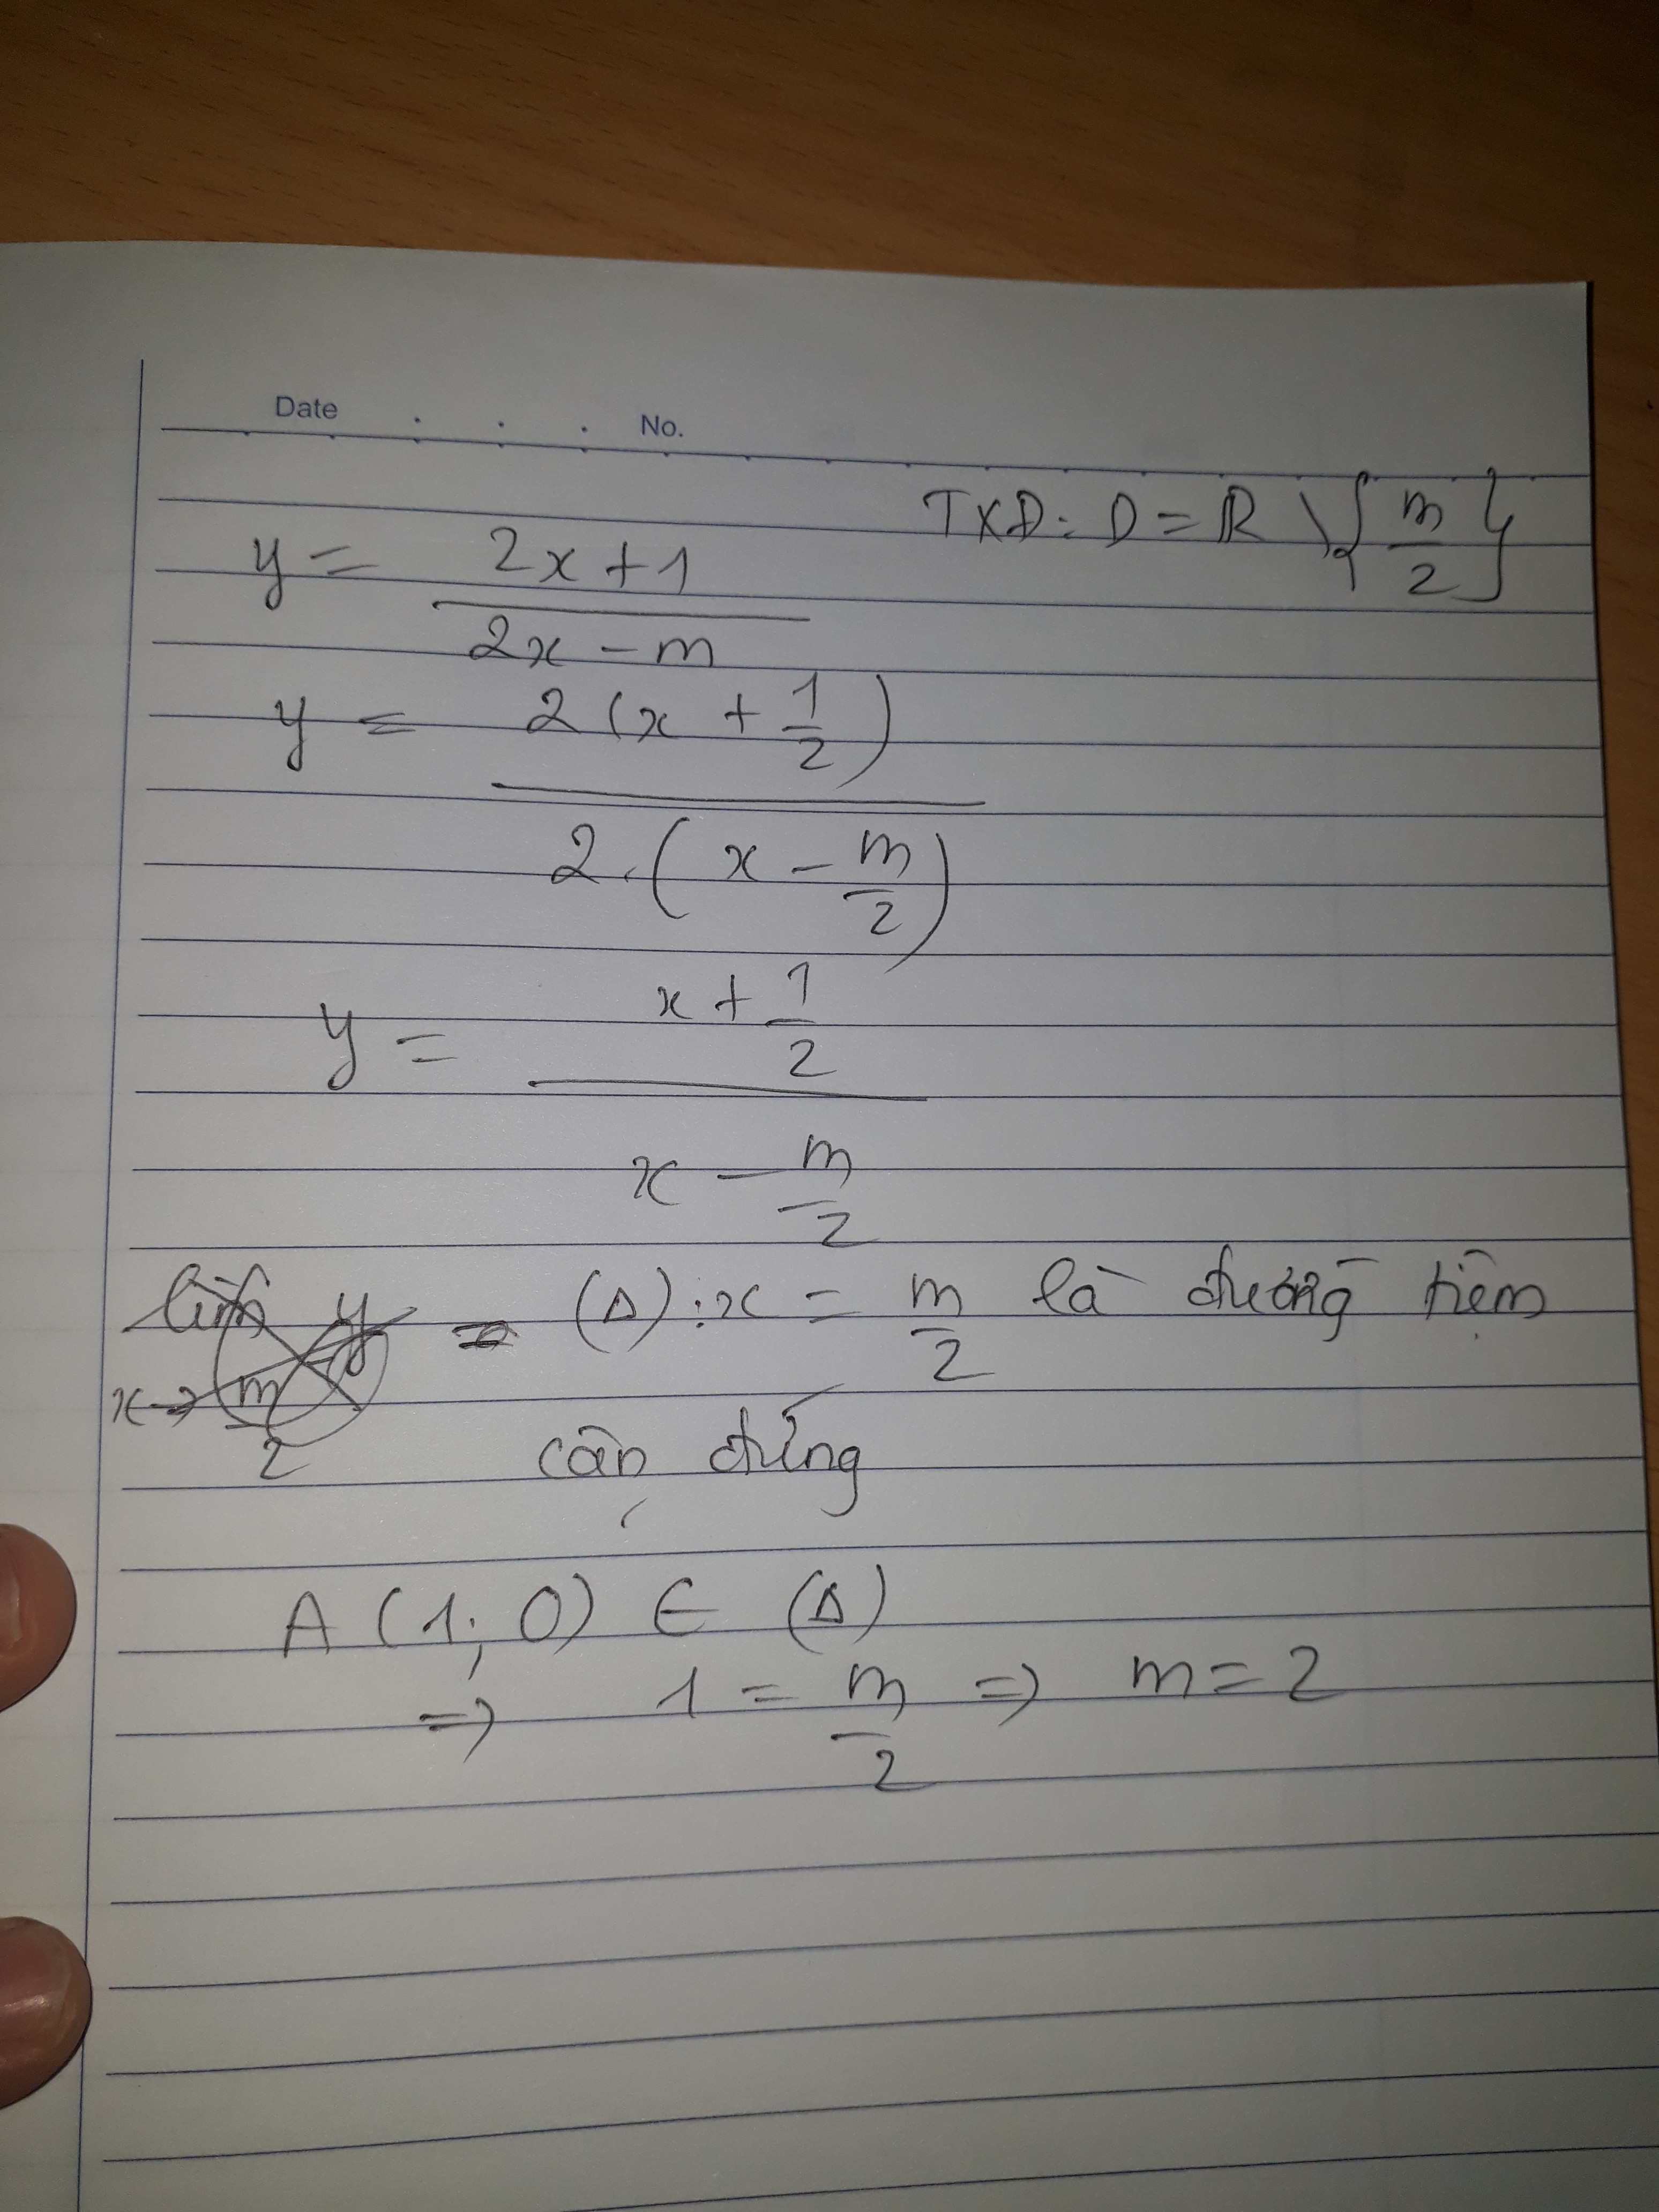 Date No.
TXD: D = R \ { m/2 }
y = (2x + 1)/(2x - m)
y = 2(x + 1/2)/(2.(x - m/2))
y = (x + 1/2)/(x - m/2)
lim y = (Δ): x = m/2 là đường tiệm
x→ m/2
cận đứng
A (1; 0) ∈ (Δ)
=> 1 = m/2 => m = 2